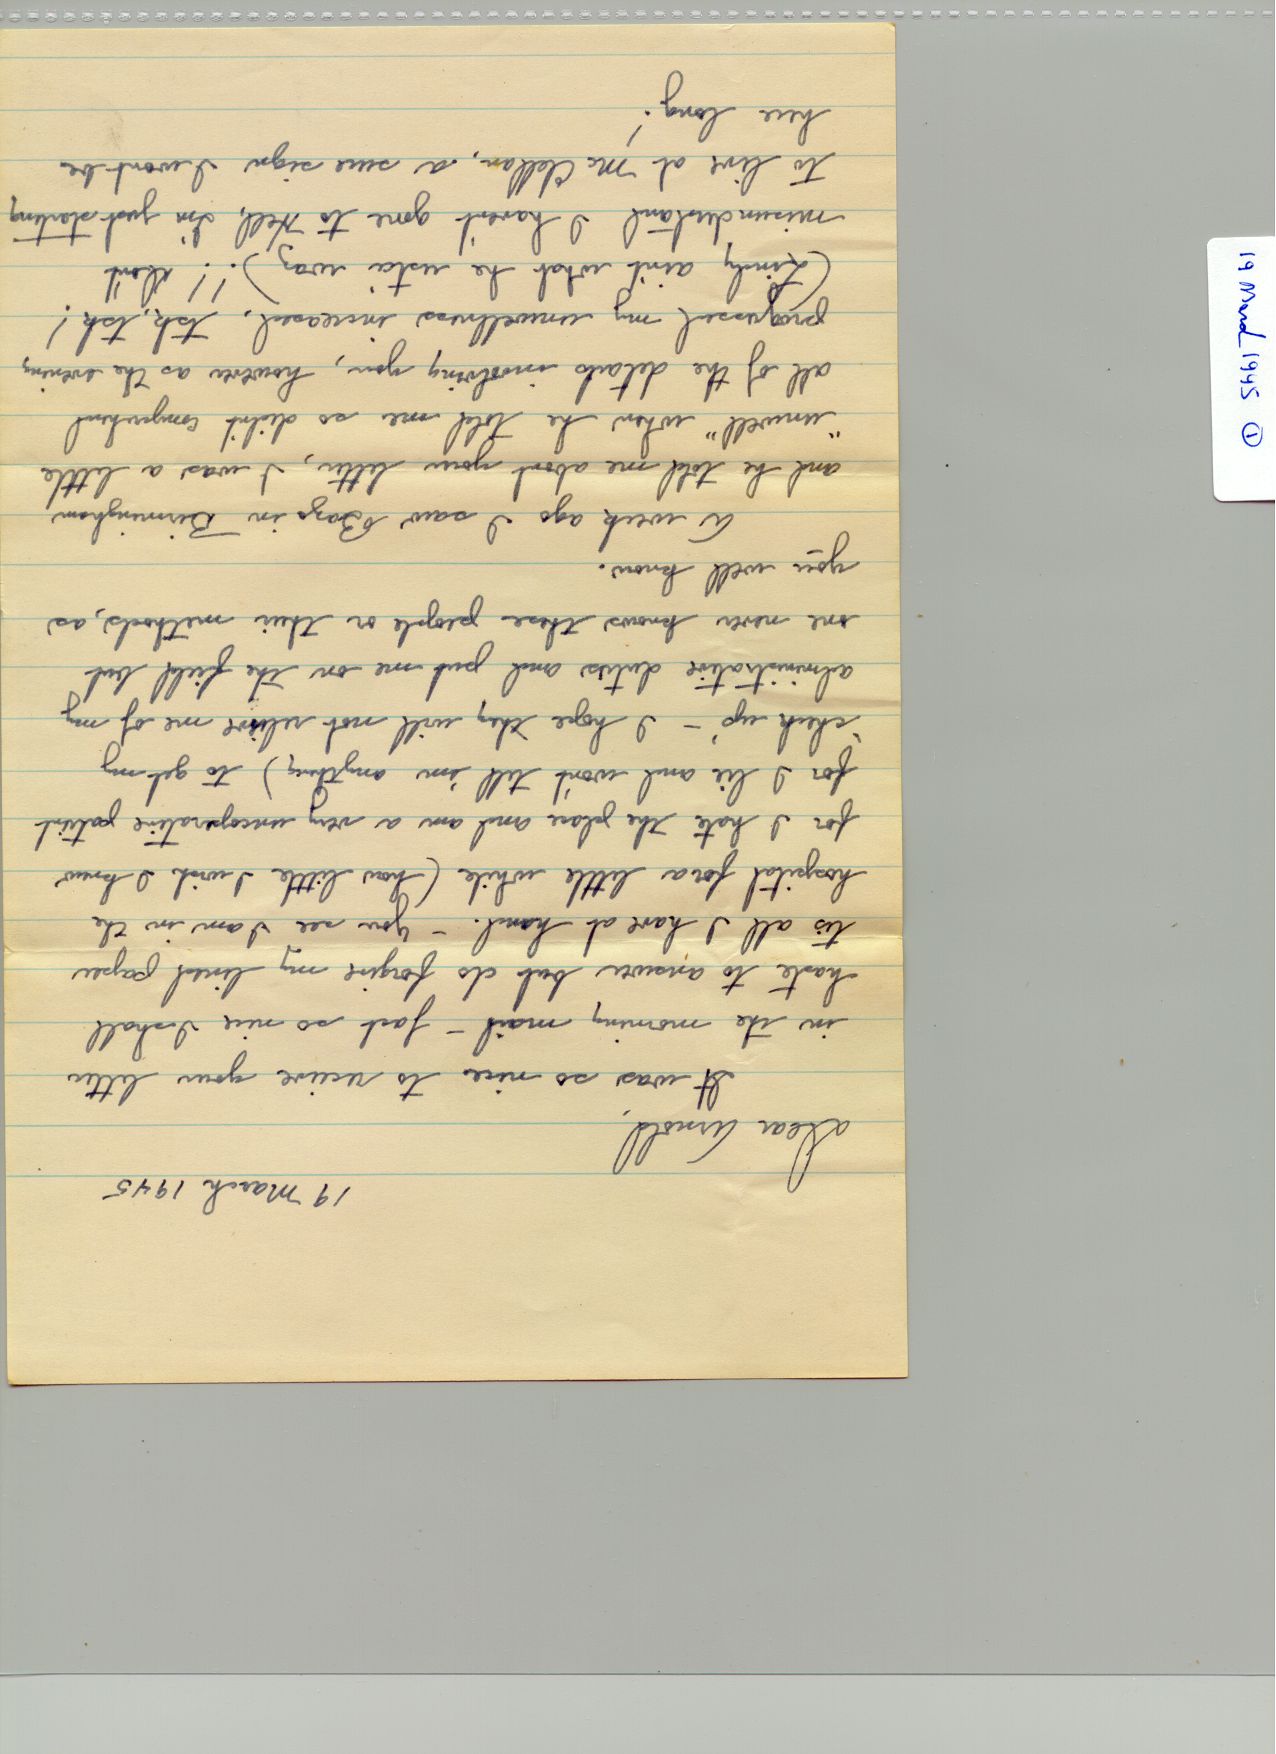 19 March 1945
Dear Arnold,
It was so nice to receive your letter
in the morning mail – fact so nice I shall
haste to answer but do forgive my lined paper
tis all I have at hand. – You see I am in the
hospital for a little while (how little I wish I knew
for I hate the place and am a very uncoperative patient
for I lie and won't tell 'em anything) to get my
"check up" – I hope they will not relieve me of my
administrative duties and put me on the field but
one never knows these people or their methods, as
you well know.
A week ago I saw Bozo in Birmingham
and he told me about your letter, I was a little
"unwell" when he told me so didn't comprehend
all of the details involving you, however as the evening
progressed my unwellness increased, tsk, tsk!
(Lindy ain't what he usta waz)!!! Don't
misunderstand I haven't gone to Hell, I'm just starting
to live at McClellan, a sure sign I won't be
here long!
19 March 1945 ①